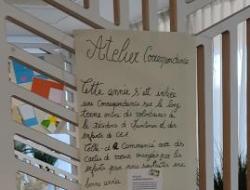 Atelier Correspondance
Cette année s'est créée
une Correspondance sur le long
terme entre des volontaires de
la de et des
enfants de CE2
Celle-ci a Commencé avec des
Cartes de voeux envoyées par les
enfants pour nous souhaiter une
bonne année